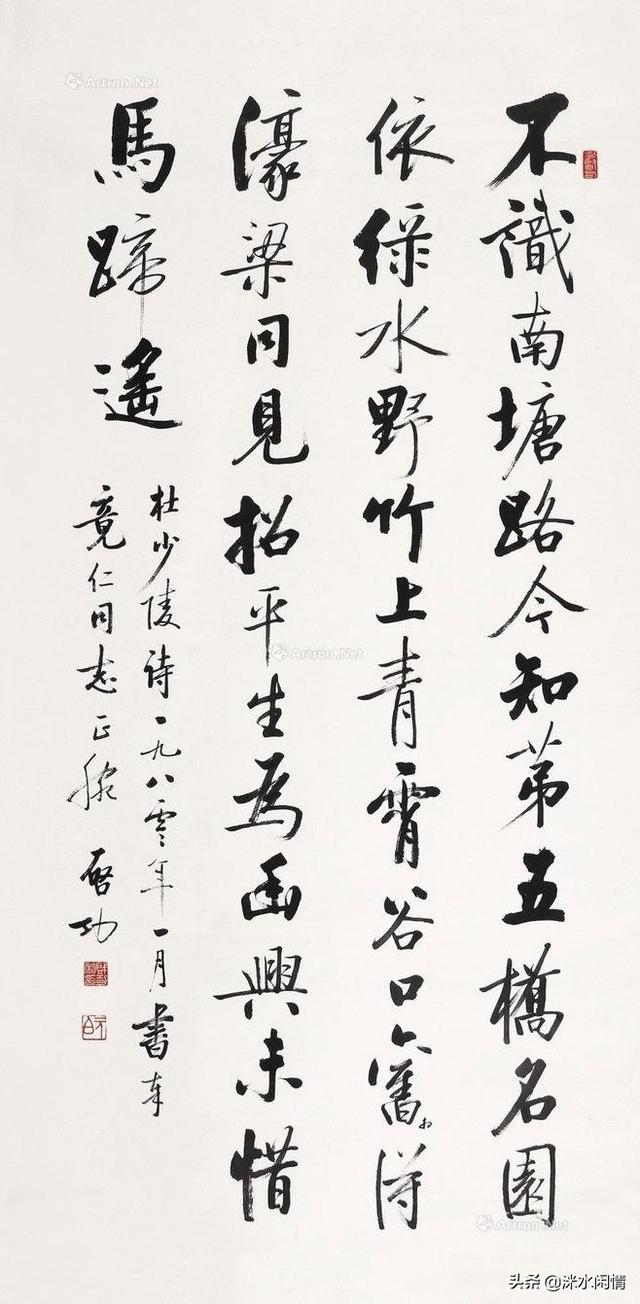 不識南塘路今知苐五橋名園
依綠水野竹上青霄谷口舊相得
濠梁同見招平生為幽興未惜
馬蹄遙
杜少陵詩一九八零年一月書奉
竟仁同志正腕 啓功
Artron.Net
Artron.Net
Artron.Net
头条 @洣水闲情